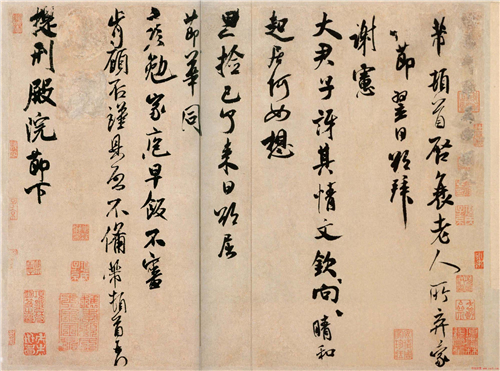 芾頓首啓衰老人所弃蒙
節翌日欲拜
謝憲
大君子訝其情文欽向晴和
起居何如想
撿已了來日欲屈
節華同
勉家庖早飯不審
肯顧否謹具啓不備芾頓首
提刑殿院節下